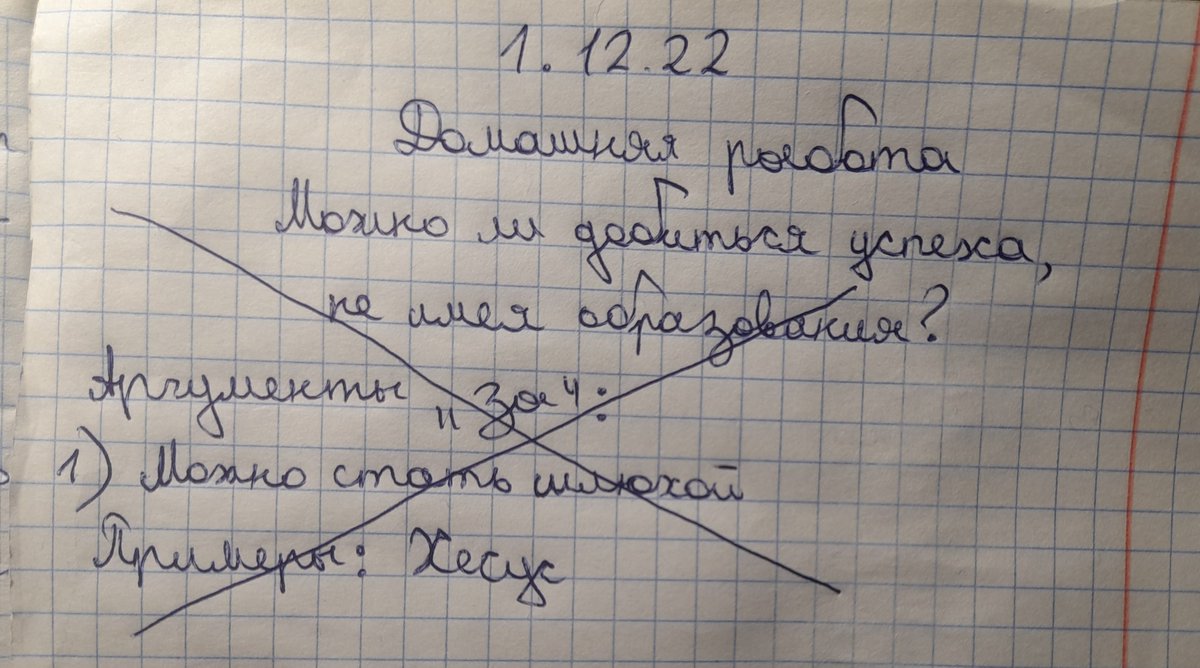 1.12.22
Домашняя работа
Можно ли добиться успеха,
не имея образования?
Аргументы „за“:
1) Можно стать шлюхой
Примеры: Хесус